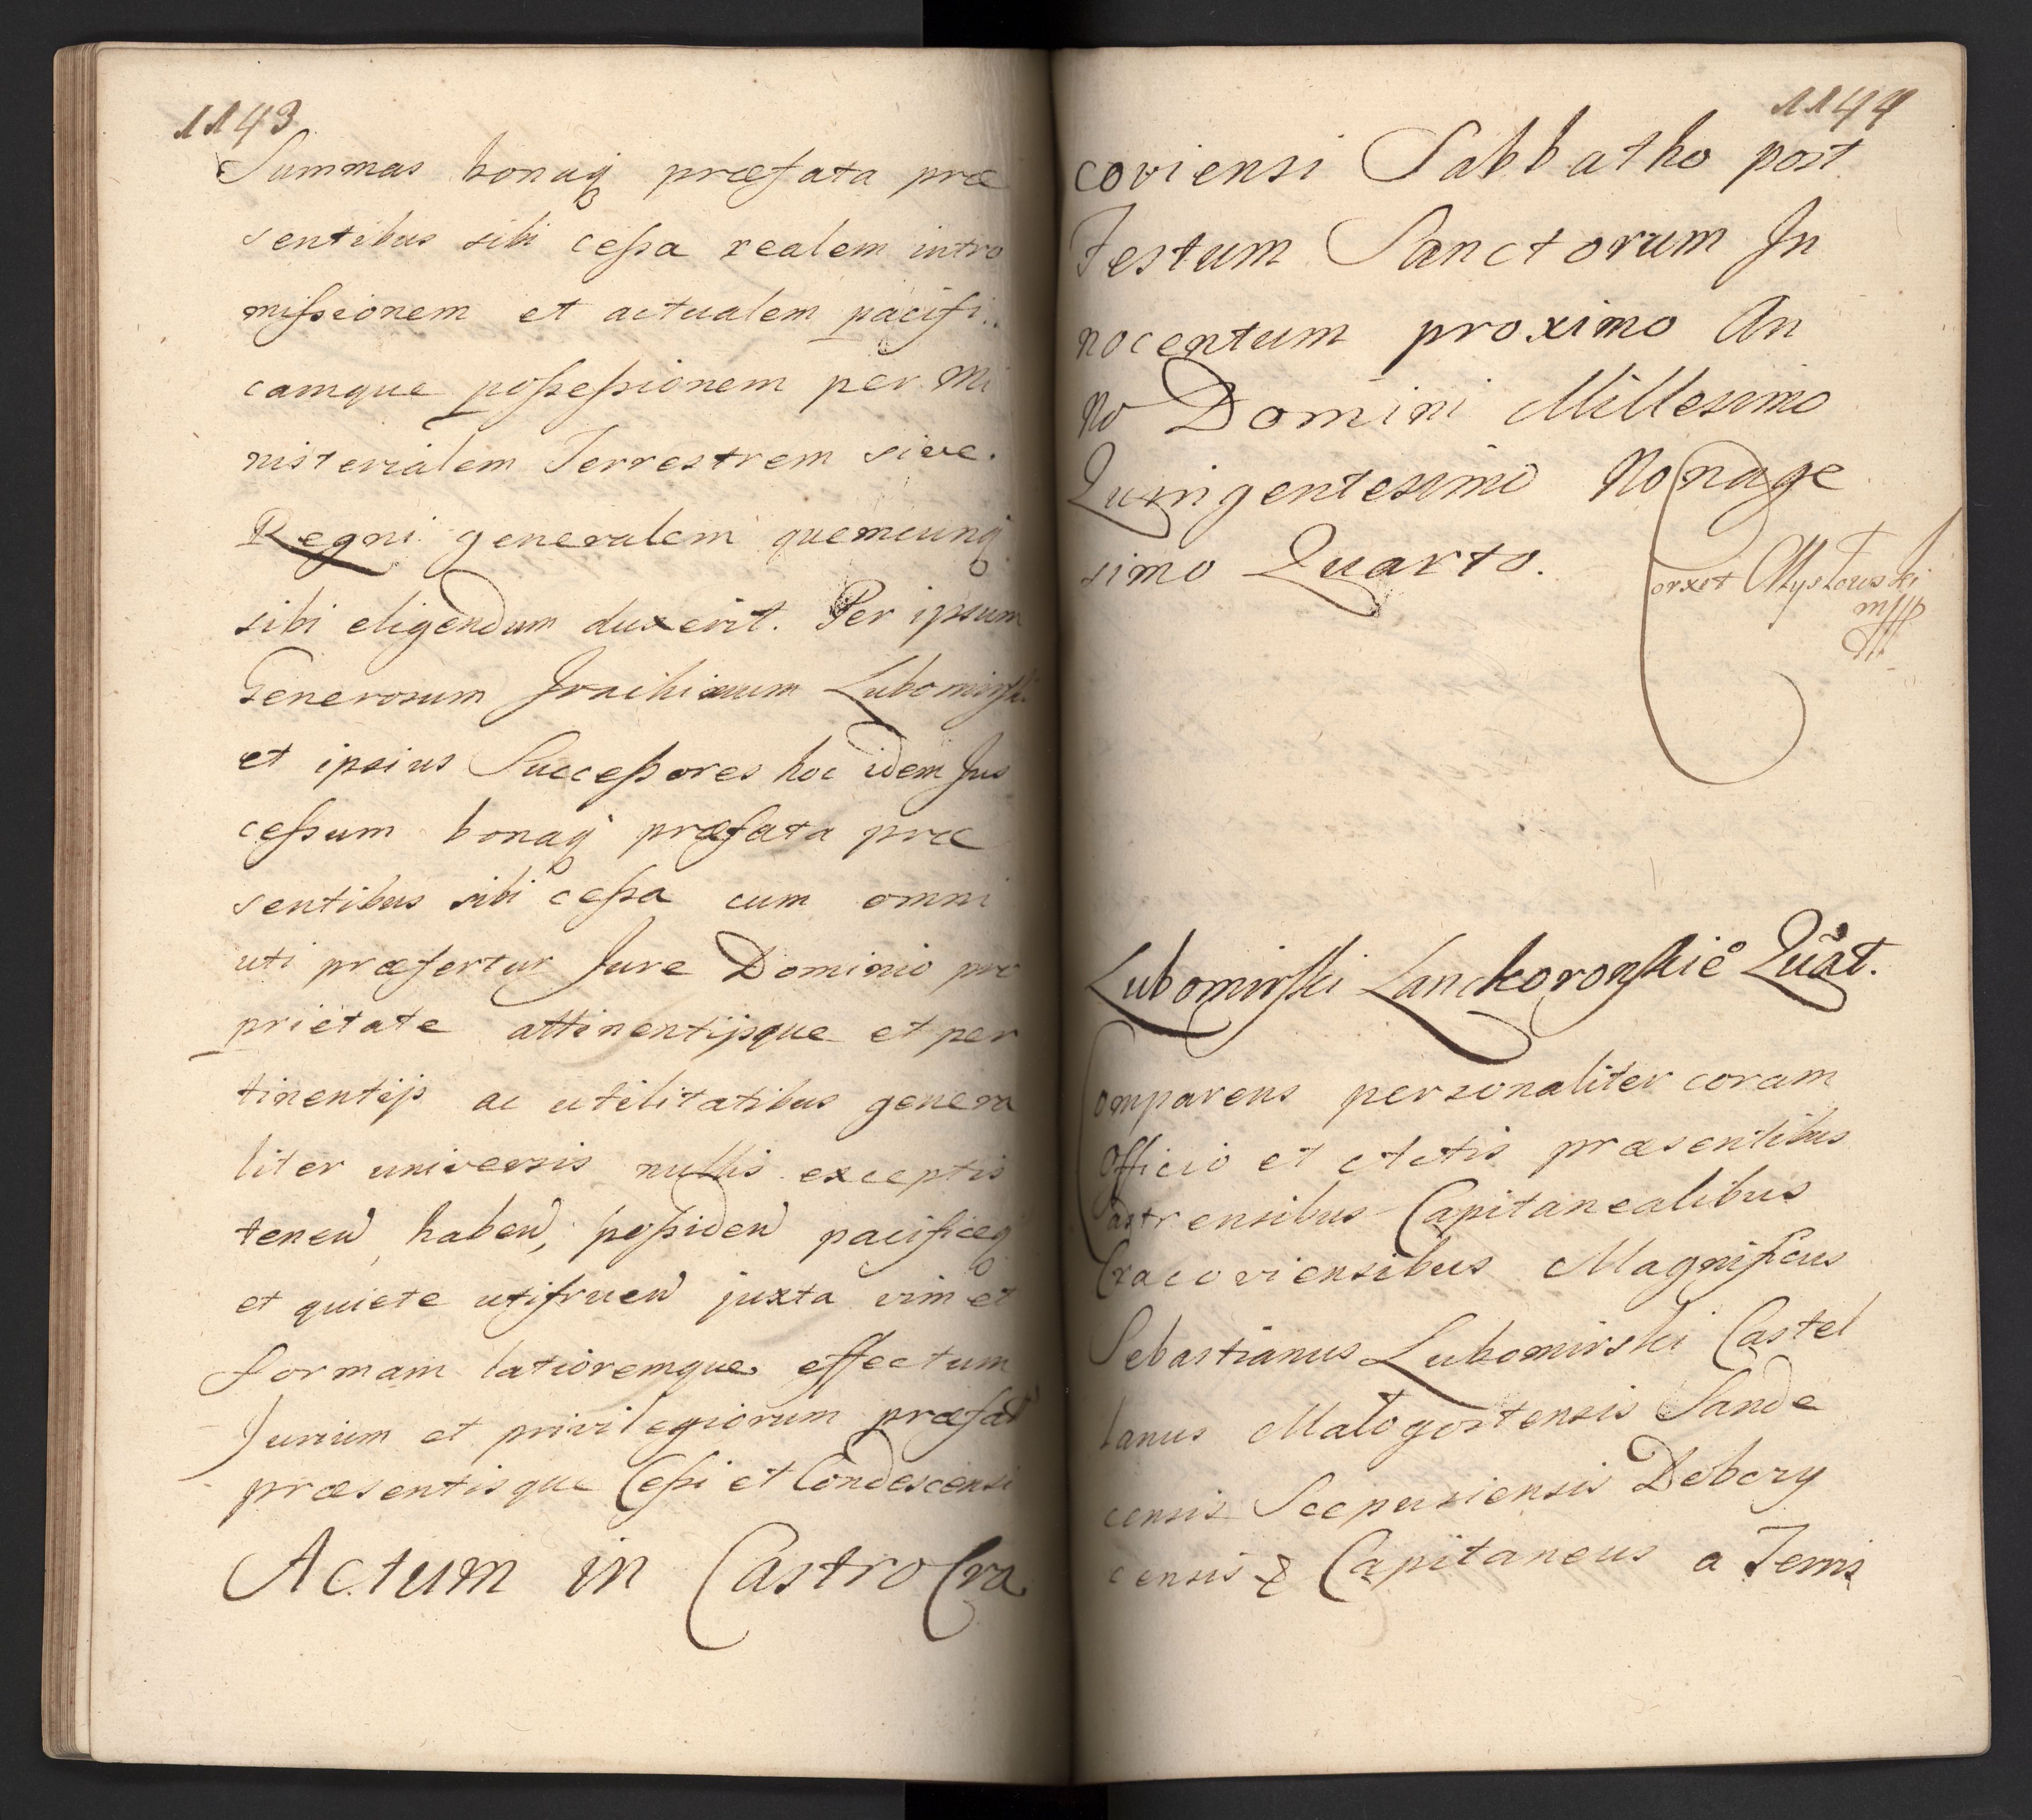 1143
Summas bonaq præfata præ
sentibus sibi cessa realem intro
missionem et actualem pacifi..
camque possessionem per Mi
nisterialem Terrestrem sive.
Regni generalem quemcunq
sibi eligendum duxerit. Per ipsum
Generosum Lubomirski
et ipsius Successores hoc idem Jus
cessum bonaq præfata præ
sentibus sibi cessa cum omni
uti præfertur Jure Dominio pro
prietate attinentijsque et per
tinentijs ac utilitatibus genera
liter universis nullis exceptis
tenen haben, possiden pacificeq
et quiete utifruen juxta vim et
formam latioremque effectum
Jurium et privilegiorum præfat
præsentisque Cessi et Condescensi
Actum in Castro Cra
1144
coviensi Sabbatho post
Festum Sanctorum In
nocentum proximo An
no Domini Millesimo
Quingentesimo Nonage
simo Quarto.
Lubomirski Lanckoronskie Quat.
Comparens personaliter coram
Officio et Actis præsentibus
Castrensibus Capitanealibus
Cracoviensibus Magnificus
Sebastianus Lubomirski Castel
lanus Malogostensis Sande
censis Scepusiensis Dobczy
censis & Capitaneus a Terris